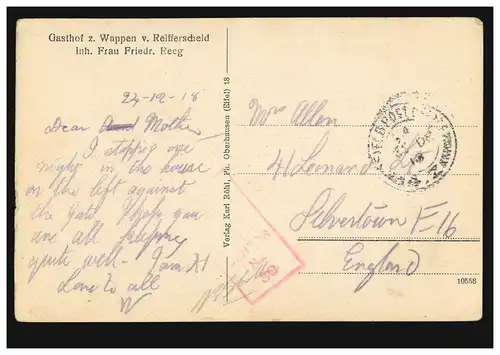 Gasthof z. Wappen v. Reifferscheid
Inh. Frau Friedr. Recg
24-12-18
Dear Mother
I stopped one
night in the house
on the left against
the Gate I hope you
are all keeping
quite well - I am A1
Love to all
W
Verlag Karl Röhl, Ph. Oberhausen (Eifel) 18
Mrs Allen
41 Leonard
Silvertown E16
England
10558